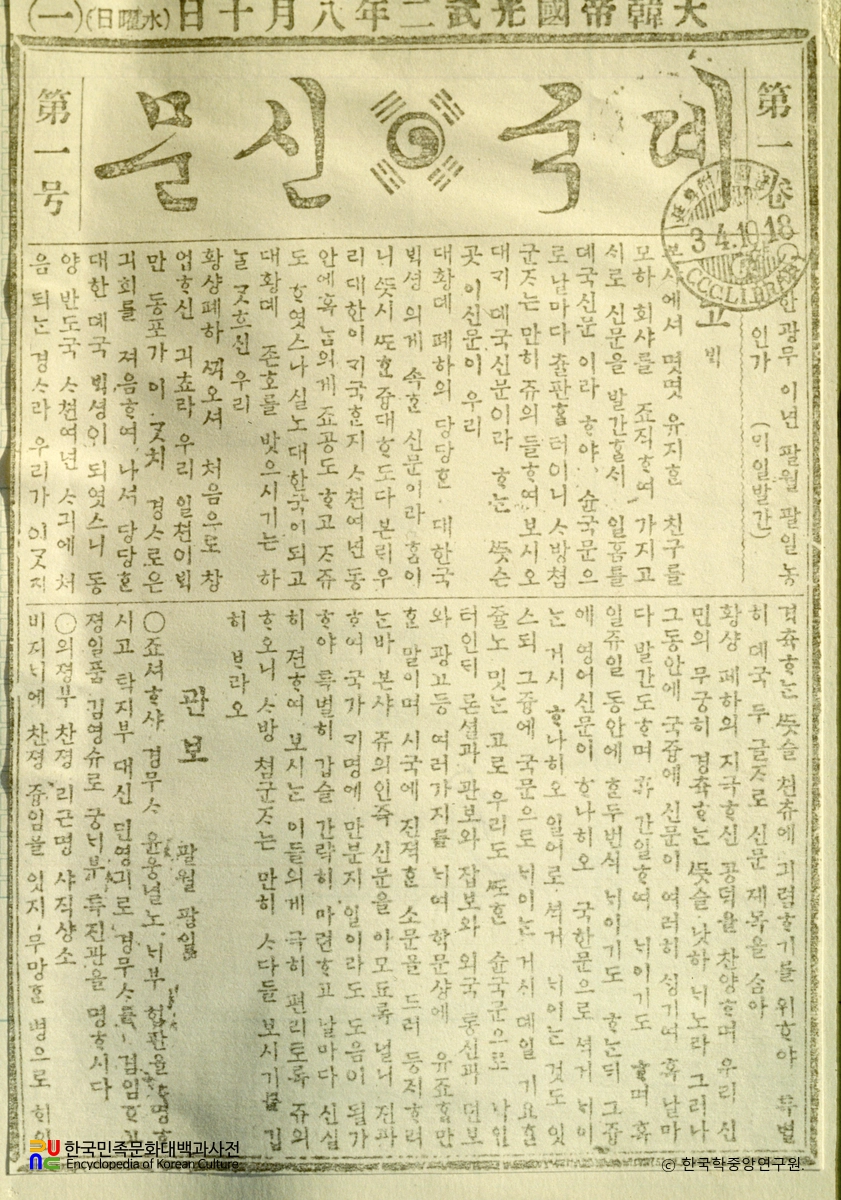 大韓帝國光武二年八月十日 (水曜日) (一)
第一卷
뎨국신문
第一号
한광무 이년 팔월 팔일 농
인가 (ᄆᆡ일발간)
고ᄇᆡᆨ
본사에서 몃몃 유지ᄒᆞᆫ 친구를
모하 회샤를 죠직ᄒᆞ여 가지고
새로 신문을 발간ᄒᆞᆯᄉᆡ 일홈를
뎨국신문 이라 ᄒᆞ야 슌국문으
로 날마다 츌판ᄒᆞᆯ터이니 ᄉᆞ방쳠
군ᄌᆞᄂᆞᆫ 만히 쥬의 들ᄒᆞ여 보시오
대개 뎨국신문이라 ᄒᆞᄂᆞᆫ ᄯᅳᆺ슨
곳 이신문이 우리
대황뎨 폐하의 당당ᄒᆞᆫ 대한국
ᄇᆡᆨ셩 의게 속ᄒᆞᆫ 신문이라 홈이
니 ᄯᅳᆺ시 ᄯᅩᄒᆞᆫ 즁대ᄒᆞ도다 본ᄅᆡ우
리대한이 ᄀᆡ국ᄒᆞᆫ지 ᄉᆞ쳔여년동
안에 혹 ᄂᆞᆷ의게 죠공도 ᄒᆞ고 ᄌᆞ쥬
도 ᄒᆞ엿스나 실노 대한국이 되고
대황뎨 존호를 밧으시기는 하
ᄂᆞᆯ ᄀᆞᆺ흐신 우리
황샹폐하 ᄭᅴ오셔 처음으로 창
업ᄒᆞ신 긔쵸라 우리 일쳔이ᄇᆡᆨ
만 동포가 이 ᄀᆞᆺ치 경ᄉᆞ로은
긔회를 져음ᄒᆞ여 나셔 당당ᄒᆞᆫ
대한 뎨국 ᄇᆡᆨ셩이 되엿스니 동
양 반도국 ᄉᆞ쳔여년 ᄉᆞ긔에 처
음 되ᄂᆞᆫ 경ᄉᆞ라 우리가 이ᄀᆞᆺ치
경츅ᄒᆞᄂᆞᆫ ᄯᅳᆺ슬 천츄에 긔렴ᄒᆞ기를 위ᄒᆞ야 특별
히 뎨국 두 글ᄌᆞ로 신문 제목을 숨아
황샹 폐하의 지극ᄒᆞ신 공덕을 찬양ᄒᆞ며 우리 신
민의 무궁히 경츅ᄒᆞᄂᆞᆫ ᄯᅳᆺ슬 낫하 ᄂᆡ노라 그러나
그동안에 국즁에 신문이 여러히 ᄉᆡᆼ기여 혹 날마
다 발간도ᄒᆞ며 혹 간일ᄒᆞ여 ᄂᆡ이기도 ᄒᆞ며 혹
일쥬일 동안에 ᄒᆞᆫ두번식 ᄂᆡ이기도 ᄒᆞᄂᆞᆫᄃᆡ 그즁
에 영어신문이 ᄒᆞ나히오 국한문으로 셕거 ᄂᆡ이
ᄂᆞᆫ 거시 ᄒᆞ나히오 일어로 셕거 ᄂᆡ이ᄂᆞᆫ 것도 잇
스되 그즁에 국문으로 ᄂᆡ이ᄂᆞᆫ 거시 뎨일 기요ᄒᆞᆫ
쥴노 밋ᄂᆞᆫ 고로 우리도 ᄯᅩᄒᆞᆫ 슌국문으로 ᄂᆡ일
터인ᄃᆡ 론셜과 관보와 잡보와 외국 통신과 뎐보
와 광고등 여러가지를 ᄂᆡ여 학문샹에 유죠ᄒᆞᆯ만
ᄒᆞᆫ 말이며 시국에 진젹ᄒᆞᆫ 소문을 드러 등ᄌᆡᄒᆞ려
ᄂᆞᆫ바 본샤 쥬의인즉 신문을 아모됴록 널니 젼파
ᄒᆞ여 국가 ᄀᆡ명에 만분지 일이라도 도음이 될가
ᄒᆞ야 특별히 갑슬 간략히 마련ᄒᆞ고 날마다 신실
히 젼ᄒᆞ여 보시ᄂᆞᆫ 이들의게 극히 편리토록 쥬의
ᄒᆞ오니 ᄉᆞ방 쳠군ᄌᆞᄂᆞᆫ 만히 ᄉᆞ다들 보시기를 깁
히 ᄇᆞ라오
관보
팔월 팔일
○죠셔ᄒᆞ샤 경무ᄉᆞ 윤웅렬노 ᄂᆡ부 협판을 명ᄒᆞ
시고 탁지부 대신 민영긔로 경무ᄉᆞ를 겸임ᄒᆞ고
졍일품 김영슈로 궁ᄂᆡ부 특진관을 명ᄒᆞ시다
○의졍부 찬졍 리근명 샤직샹소
비지ᄂᆡ에 찬졍 즁임을 잇지 무망ᄒᆞᆫ 병으로
한국민족문화대백과사전
Encyclopedia of Korean Culture
© 한국학중앙연구원.